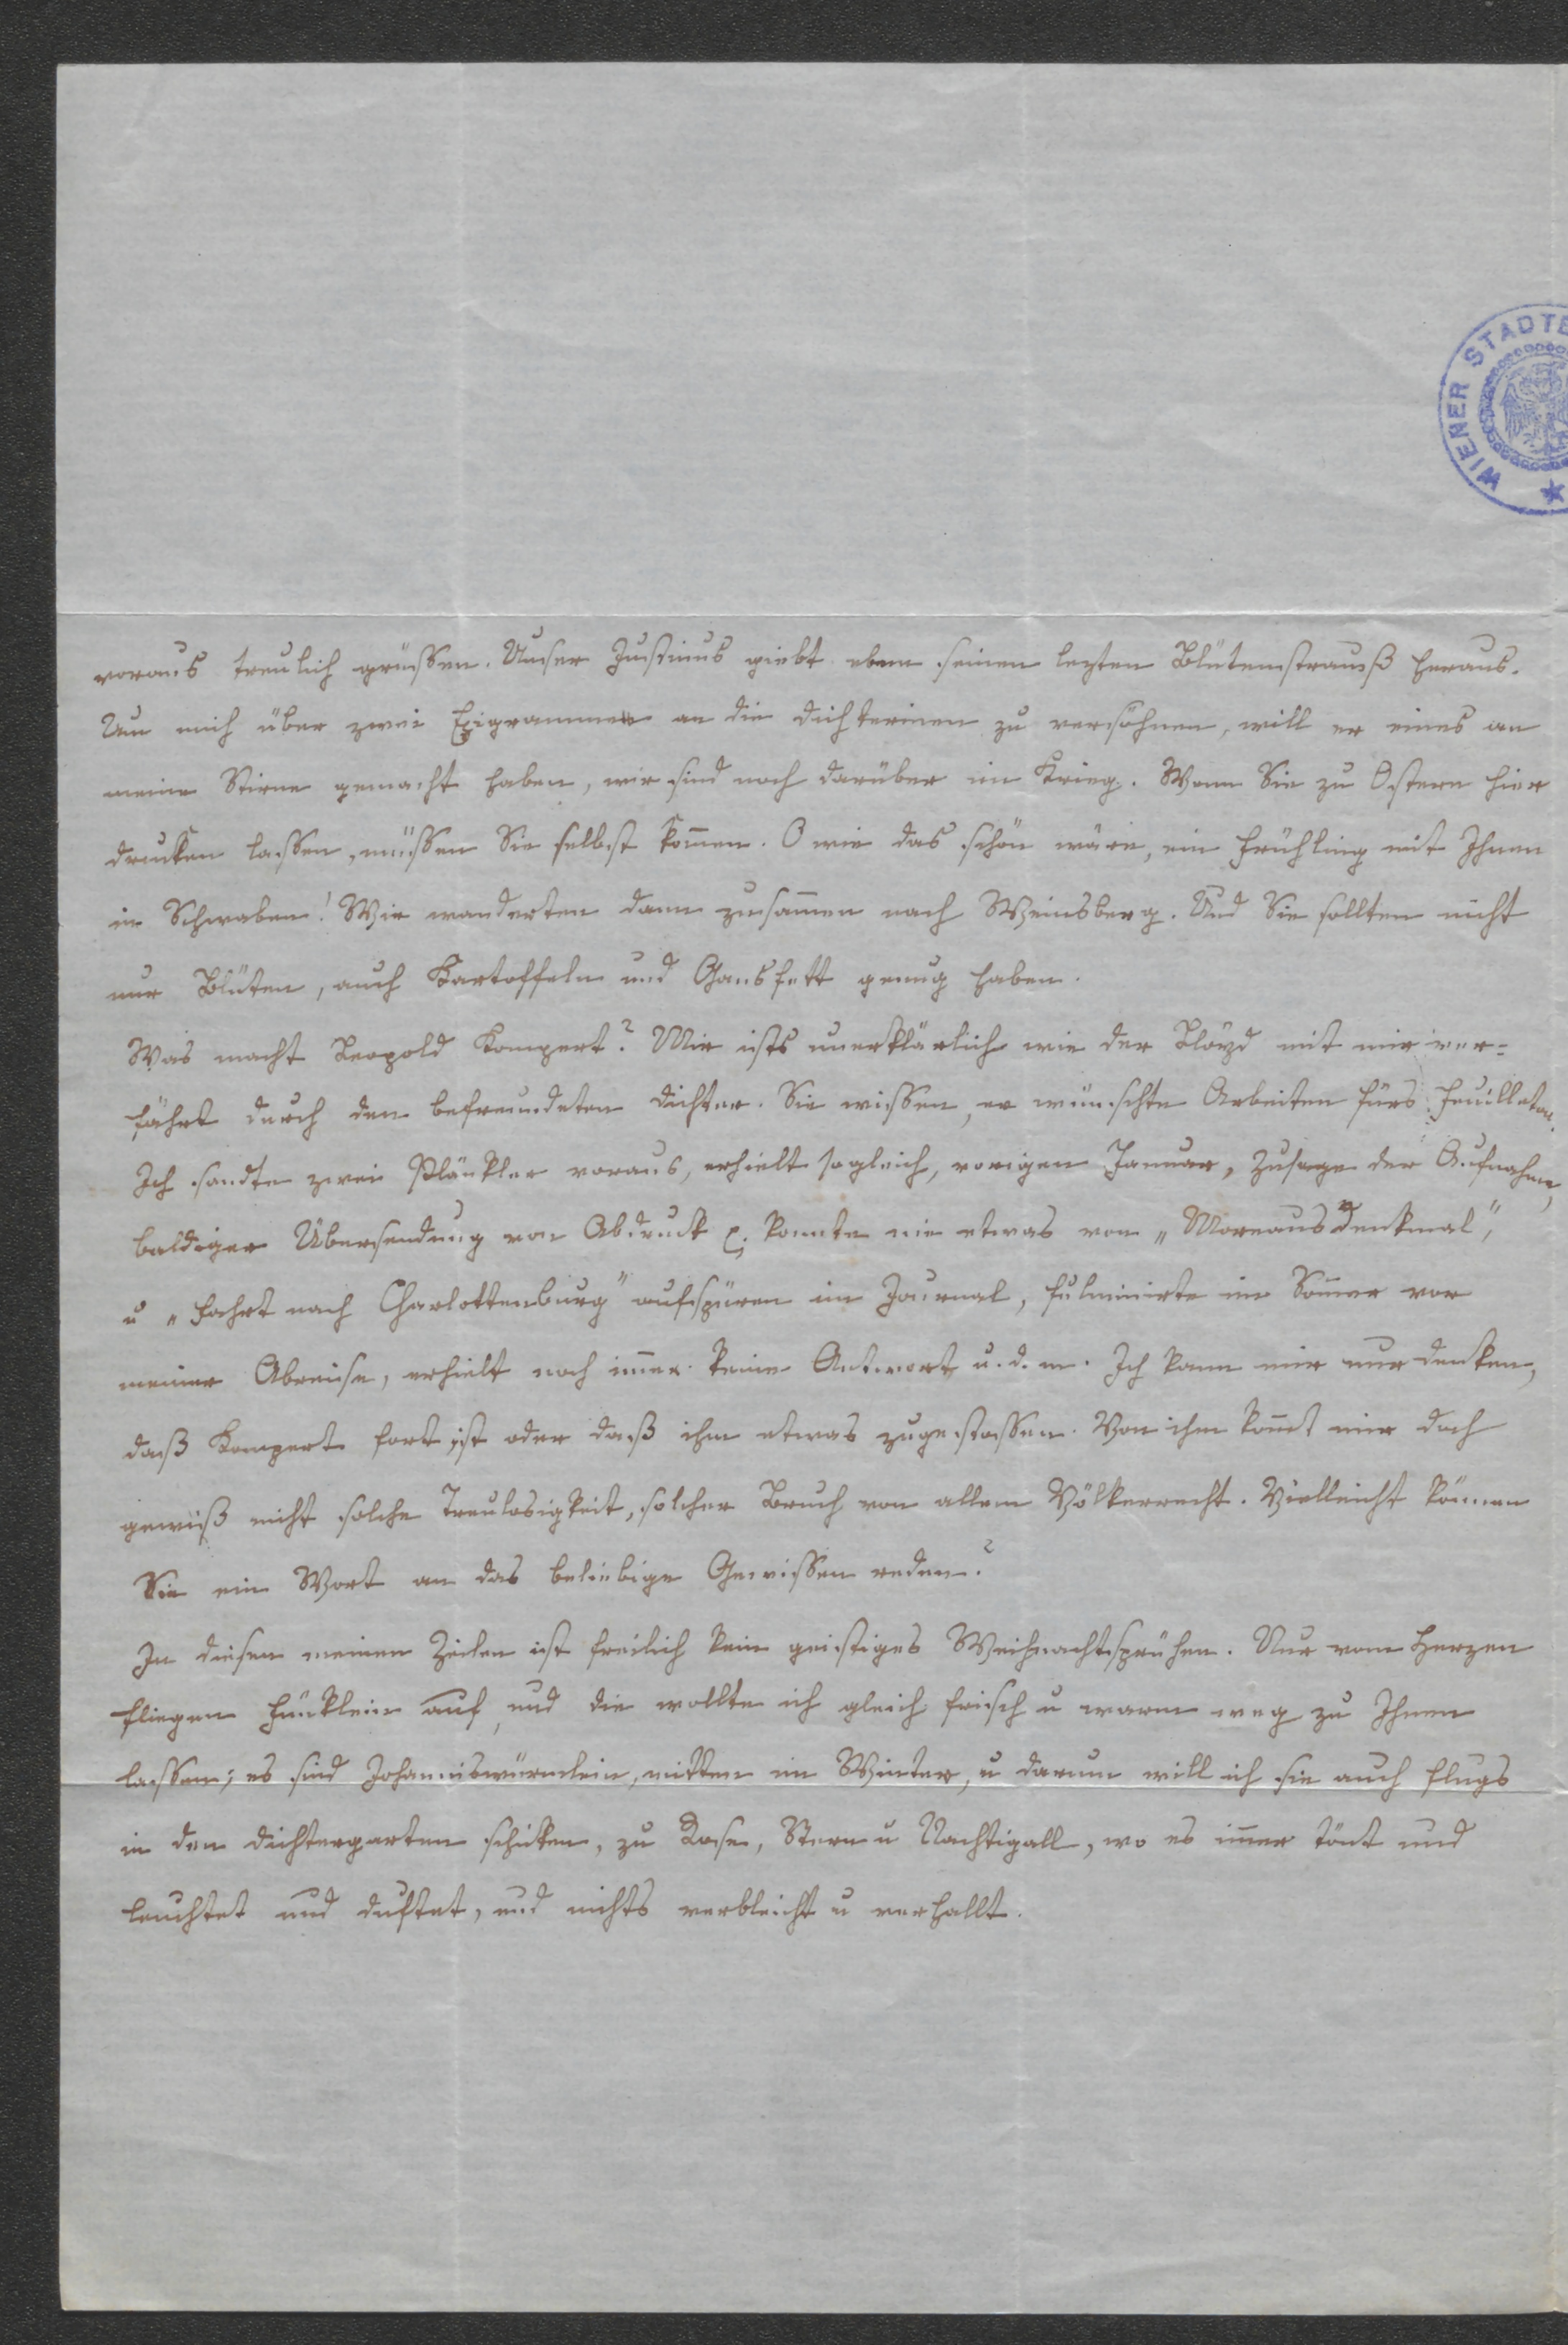 WIENER STADTB
voraus treulich grüssen. Unser Justinus giebt eben seinen lezten Blütenstrauß heraus.
Um mich über zwei Epigramme an die Dichterinen zu versöhnen, will er eines an
meine Stirne gemacht haben, wir sind noch darüber im Krieg. Wenn Sie zu Ostern hier
drucken lassen, müssen Sie selbst kom̄en. O wie das schön wäre, ein Frühling mit Ihnen
in Schwaben! Wir wanderten dann zusam̄en nach Weinsberg. Und Sie sollten nicht
nur Blüten, auch Kartoffeln und Gansfett genug haben.
Was macht Leopold Kompert? Mir ists unerklärlich wie der Lloyd mit mir ver=
fährt durch den befreundeten Dichter. Sie wissen, er wünschte Arbeiten fürs Feuilleton.
Ich sandte zwei Plänkler voraus, erhielt sogleich, vorigen Januar, Zusage der Aufnahme,
baldiger Übersendung von Abdruck pp konnte nie etwas von „Moreaus Denkmal",
u „Fahrt nach Charlottenburg" aufspüren im Journal, fulminirte im Som̄er vor
meiner Abreise, erhielt noch im̄er keine Antwort u. d. m. Ich kann mir nur denken,
daß Kompert fort ist oder daß ihm etwas zugestossen. Von ihm kom̄t mir doch
gewiß nicht solche Treulosigkeit, solcher Bruch von allem Völkerrecht. Vielleicht können
Sie ein Wort an das beliebige Gewissen reden?
In diesen meinen Zeilen ist freilich kein geistiges Weihnachtsprühen. Nur vom Herzen
fliegen Fünklein auf, und die wollte ich gleich frisch u warm weg zu Ihnen
lassen; es sind Johanniswürmlein, mitten im Winter, u darum will ich sie auch flugs
in den Dichtergarten schicken, zu Rose, Stern u Nachtigall, wo es im̄er tönt und
leuchtet und duftet, und nichts verbleicht u verhallt.